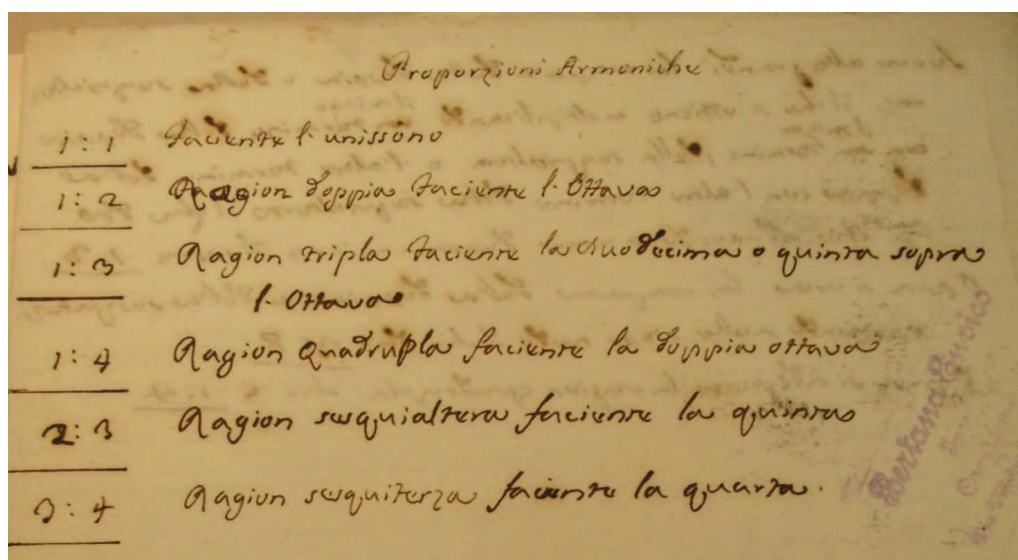 Proporzioni Armoniche
1:1 faciente l'unissono
1:2 Ragion doppia faciente l'Ottava
1:3 Ragion tripla faciente la duodecima o quinta sopra
l'Ottava
1:4 Ragion Quadrupla faciente la doppia ottava
2:3 Ragion sesquialtera faciente la quinta
3:4 Ragion sesquiterza faciente la quarta.
Bertana Enrico